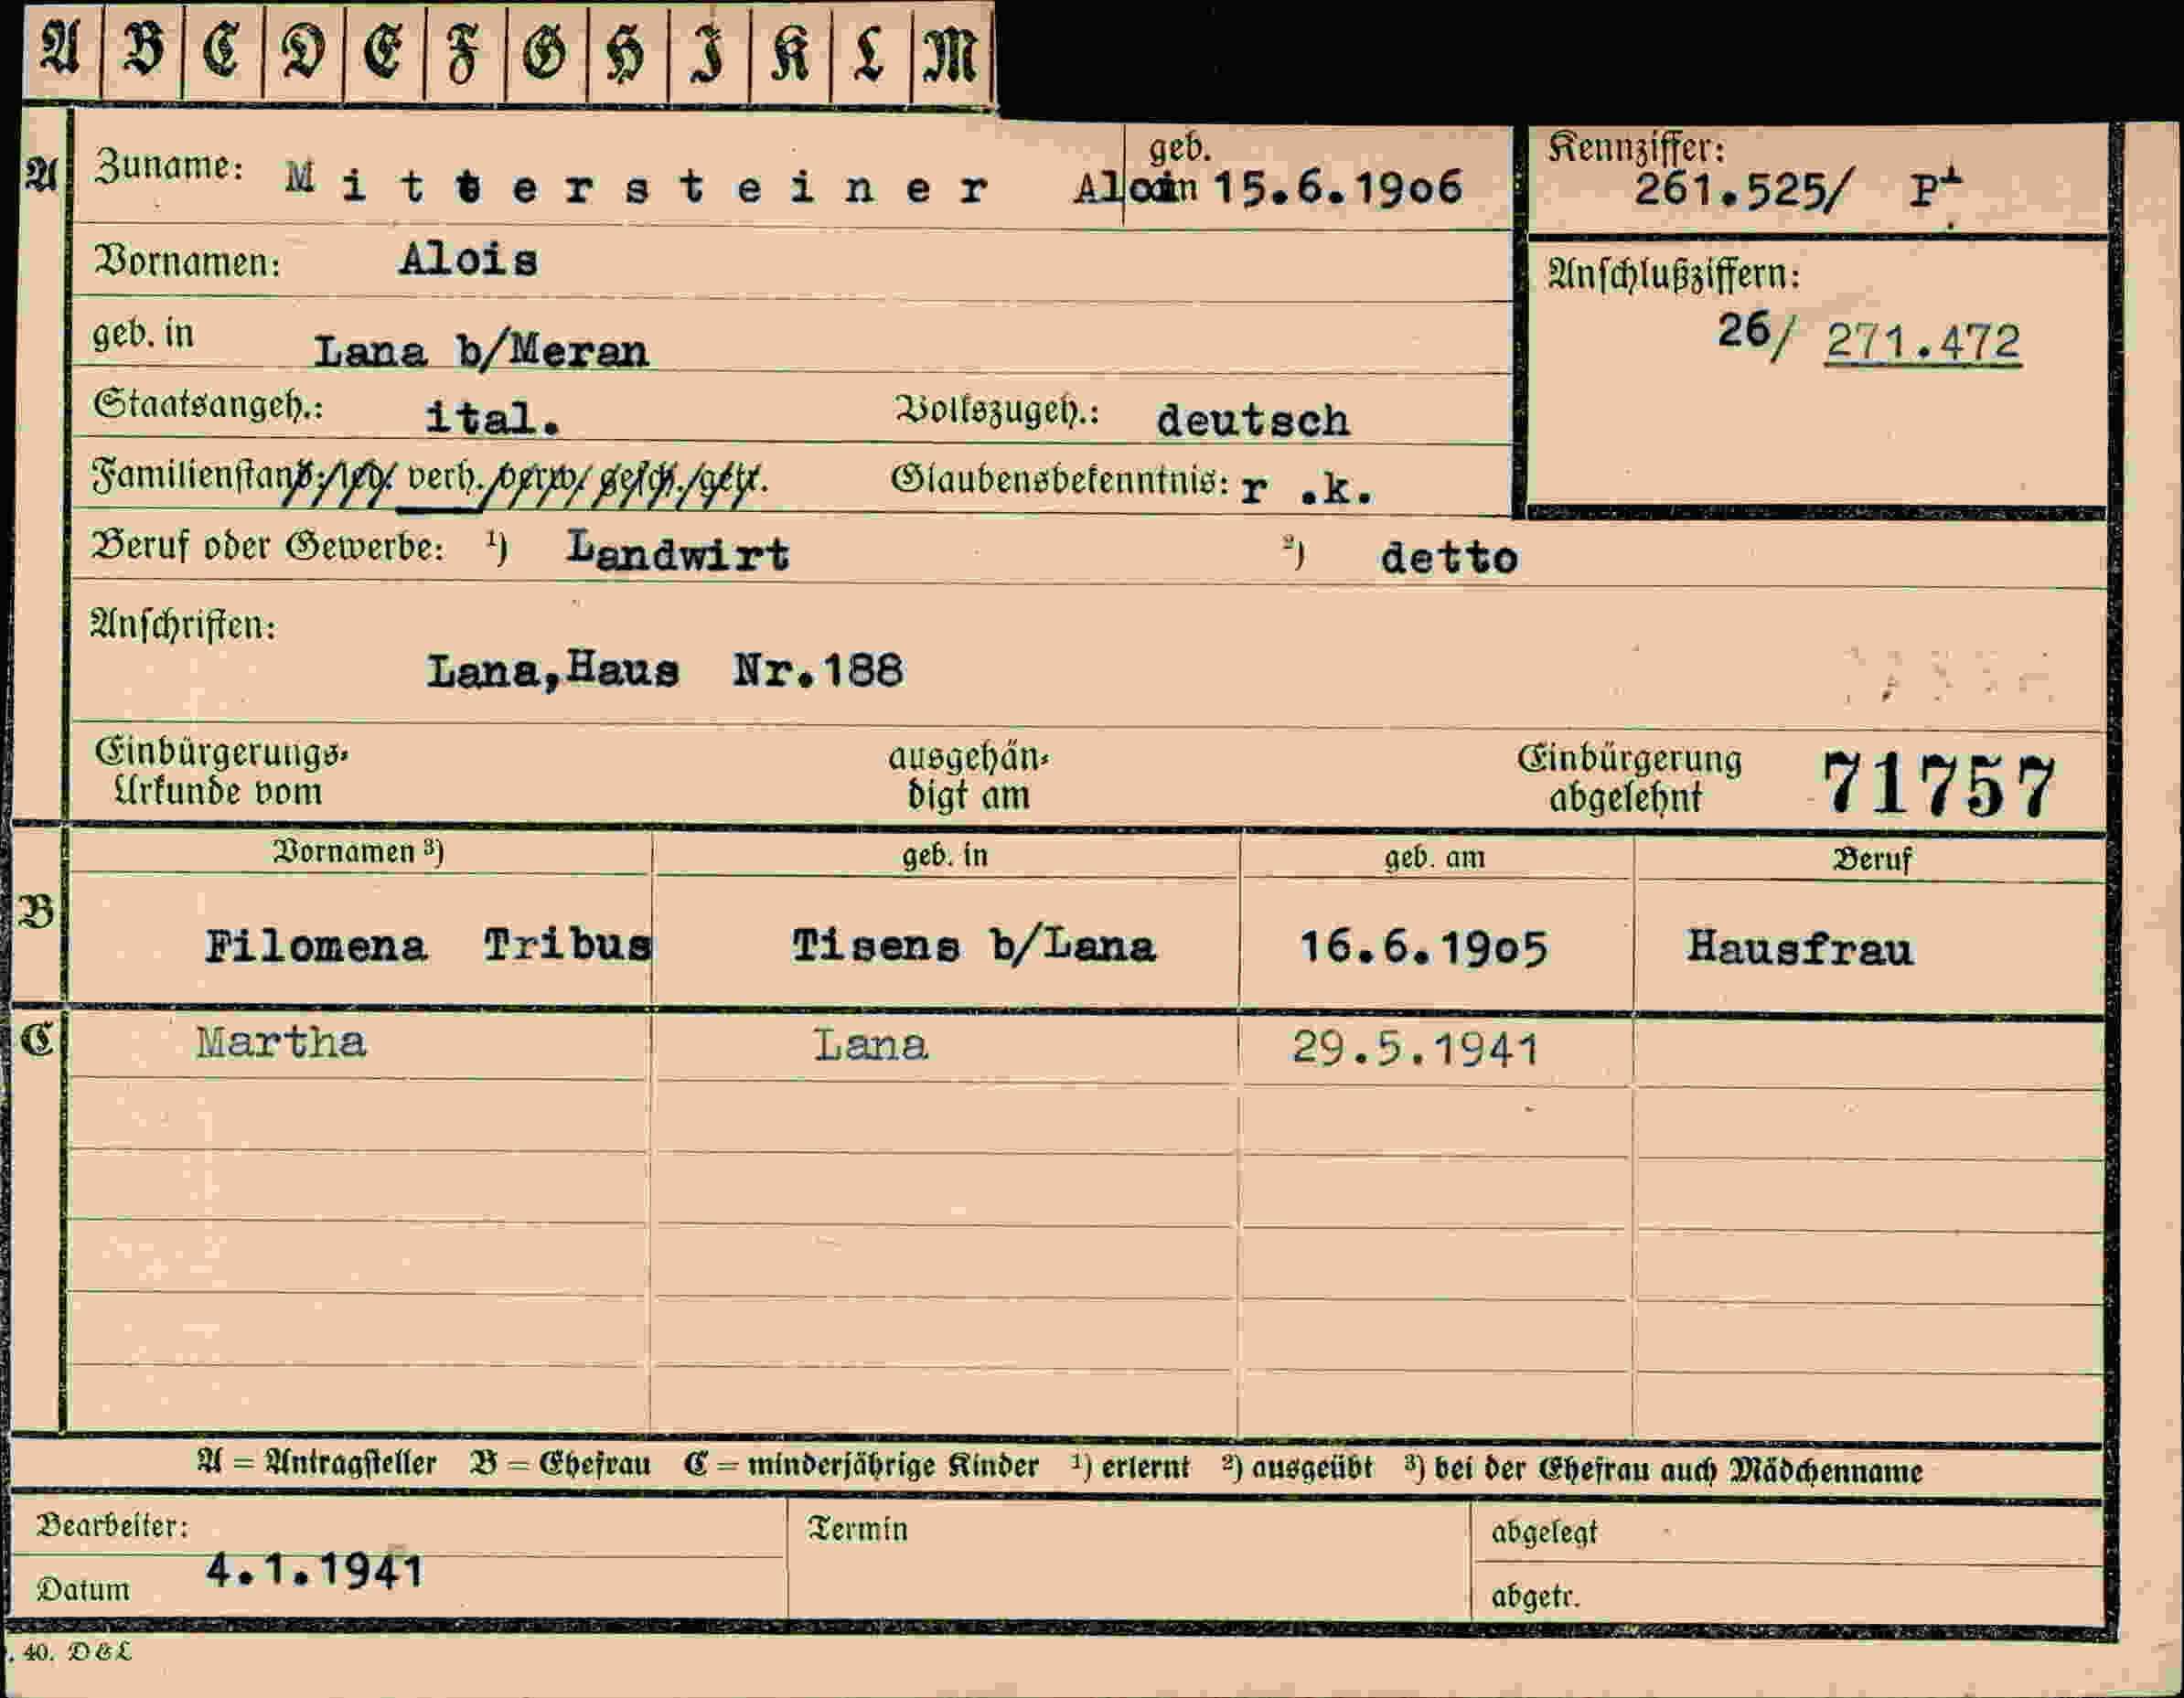 A B C D E F G H I K L M
geb. Kennziffer:
A Zuname: Mittersteiner Alois am 15.6.1906 261.525/ P
Vornamen: Alois
Anschlußziffern:
geb. in Lana b/Meran 26/ 271.472
Staatsangeh.: ital. Volkszugeh.: deutsch
Familienstand: led. verh. verw. gesch. getr. Glaubensbekenntnis: r .k.
Beruf oder Gewerbe: ¹) Landwirt ²) detto
Anschriften:
Lana,Haus Nr.188
Einbürgerungs- ausgehän- Einbürgerung 71757
Urkunde vom digt am abgelehnt
Vornamen ³) geb. in geb. am Beruf
B Filomena Tribus Tisens b/Lana 16.6.1905 Hausfrau
C Martha Lana 29.5.1941
A = Antragsteller B = Ehefrau C = minderjährige Kinder ¹) erlernt ²) ausgeübt ³) bei der Ehefrau auch Mädchenname
Bearbeiter: Termin abgelegt
Datum 4.1.1941 abgetr.
. 40. D&L